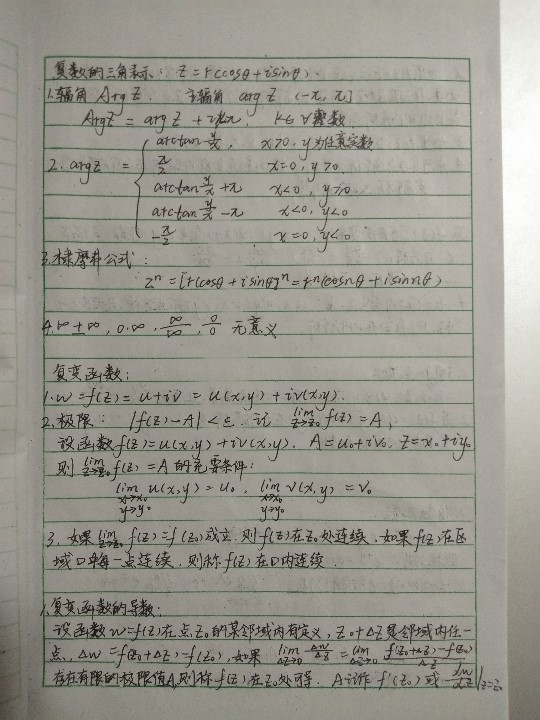 复数的三角表示: z = r(cosθ + i sinθ).
1.辐角 Arg z. 主辐角 arg z (-π, π]
Arg z = arg z + 2kπ, k∈∀整数
arctan y/x, x>0, y为任意实数
2. arg z = { π/2 x=0, y>0
arctan y/x + π x<0, y≥0
arctan y/x - π x<0, y<0
-π/2 x=0, y<0
3.棣摩弗公式:
zⁿ = [r(cosθ + i sinθ)]ⁿ = rⁿ(cos nθ + i sin nθ)
4. ∞±∞, 0·∞, ∞/∞, 0/0 无意义
复变函数:
1. w = f(z) = u+iv = u(x,y) + iv(x,y).
2. 极限: |f(z)-A| < ε. 记 lim z→z₀ f(z) = A,
设函数 f(z) = u(x,y) + iv(x,y). A = u₀+iv₀. z = x₀+iy₀
则 lim z→z₀ f(z) = A 的充要条件:
lim x→x₀ y→y₀ u(x,y) = u₀. lim x→x₀ y→y₀ v(x,y) = v₀
3. 如果 lim z→z₀ f(z) = f(z₀) 成立. 则 f(z) 在 z₀ 处连续. 如果 f(z) 在区
域D中每一点连续. 则称 f(z) 在D内连续.
1.复变函数的导数:
设函数 w=f(z) 在点 z₀ 的某邻域内有定义, z₀+Δz 是邻域内任一
点, Δw = f(z₀+Δz) - f(z₀), 如果 lim Δz→0 Δw/Δz = lim Δz→0 (f(z₀+Δz)-f(z₀))/Δz
存在有限的极限值A,则称 f(z) 在 z₀ 处可导. A记作 f'(z₀) 或 dw/dz|z=z₀